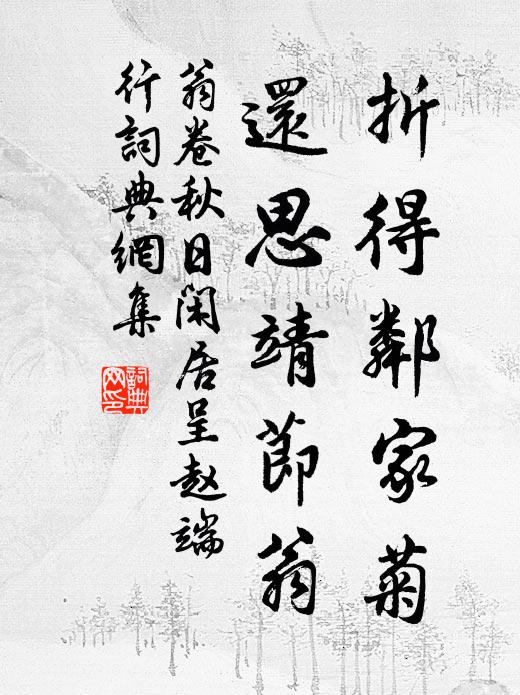 折得鄰家菊
還思靖節翁
翁卷秋日閑居呈赵端
行詞典網集
詞典網印